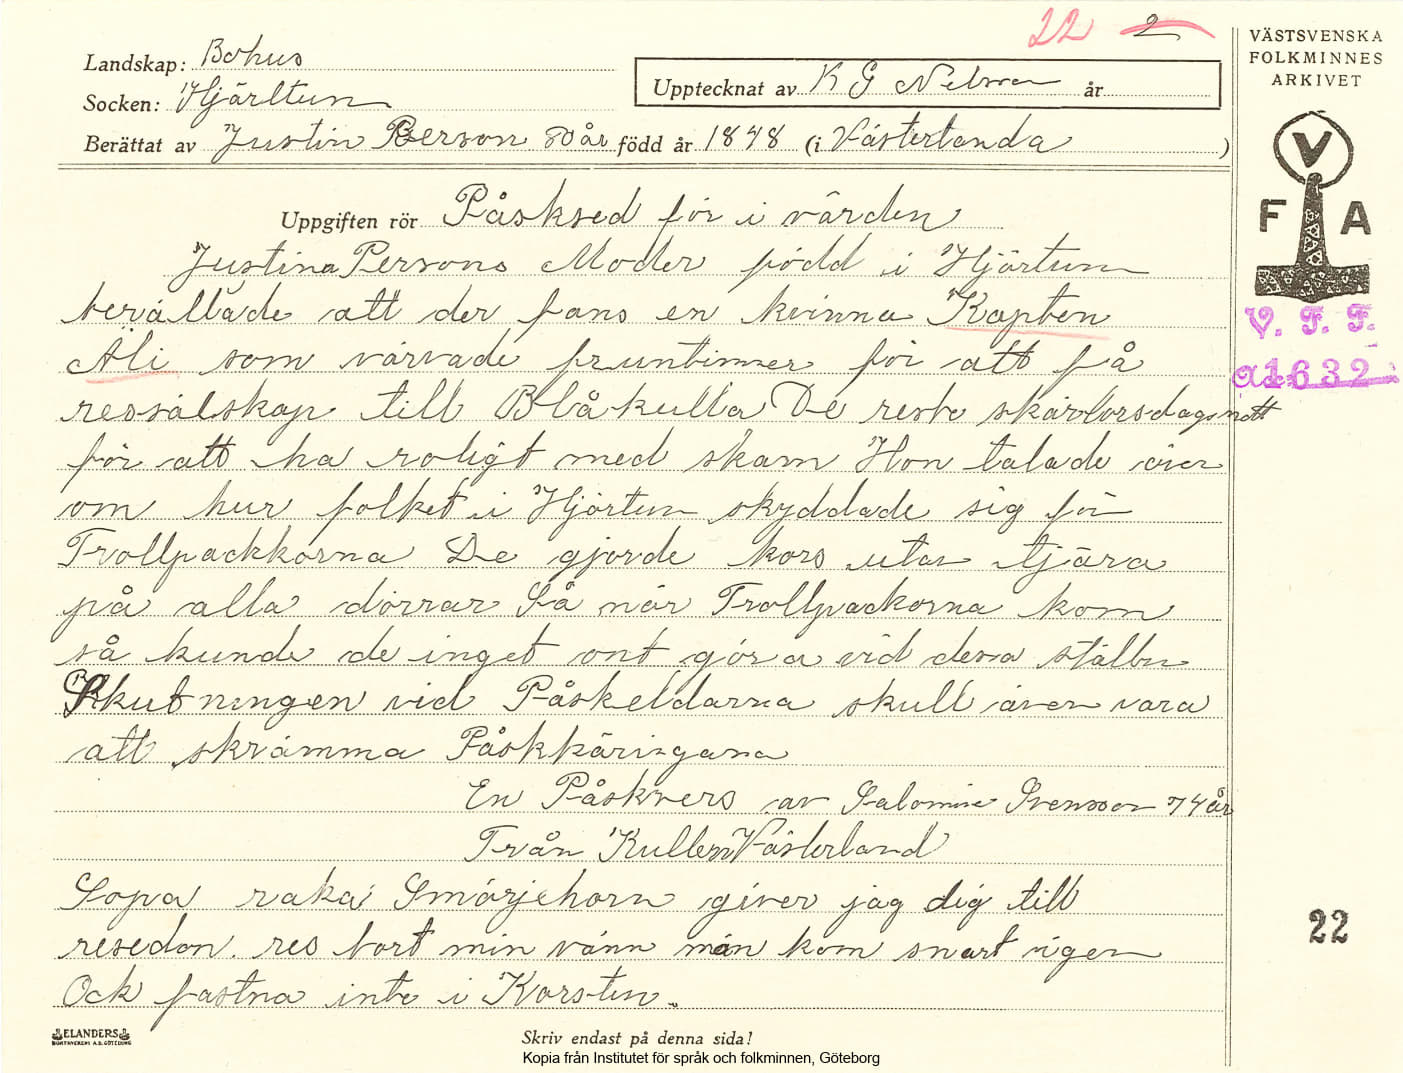 22 2
VÄSTSVENSKA
FOLKMINNES
ARKIVET
Landskap: Bohus
Socken: Hjärltum
Upptecknat av K G Nelson år
Berättat av Justin Person 80 år född år 1848 (i Västerlanda)
V
F A
V. F. F.
1632
Uppgiften rör Påsksed för i värden
Justina Persons Moder född i Hjärtum
berättade att der fans en kvinna Kapten
Äli som värvade fruntimer för att få
ressälskap till Blåkulla De reste skärtorsdagsnatt
för att ha roligt med skam Hon talade även
om hur folket i Hjärtum skyddade sig för
Trollpackkorna De gjorde kors utav tjära
på alla dörrar Så när Trollpackorna kom
så kunde de inget ont göra vid dessa ställen
Skutningen vid Påskeldarna skull även vara
att skrämma Påskkäringana
En Påskvers av Salomine Svensson 74 år
Från Kullen Västerland
Sopa raka Smörjehorn giver jag dig till
resedon. res bort min vänn män kom snart igen
Ock fastna inte i Korsten.
22
ELANDERS
BOKTRYCKERI A.B. GÖTEBORG
Skriv endast på denna sida!
Kopia från Institutet för språk och folkminnen, Göteborg